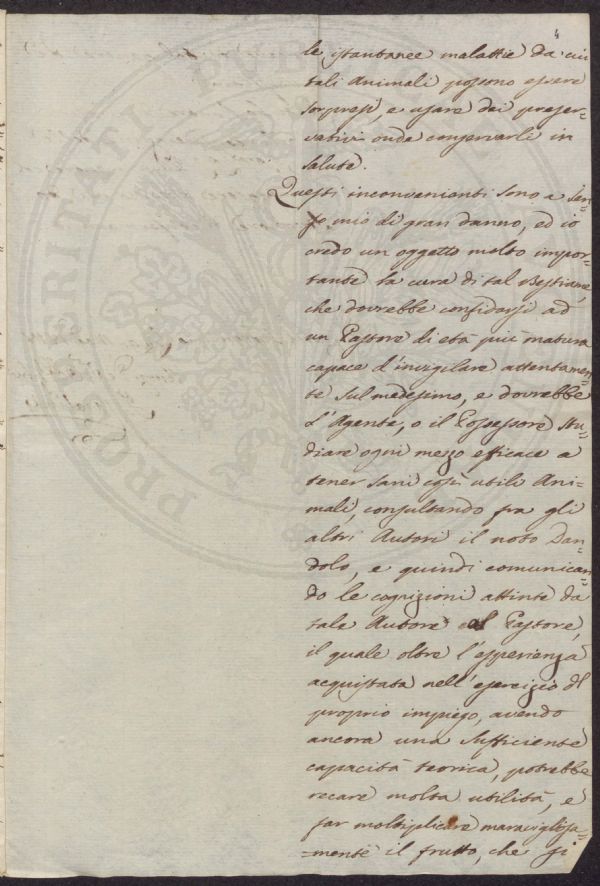 4
le istantanee malattie da cui
tali Animali possono essere
sorpresi, e usare dei preser=
vativi onde conservarli in
salute.
Questi inconvenienti sono a sen=
so mio di gran danno, ed io
credo un oggetto molto impor=
tante la cura di tal Bestiame,
che dovrebbe confidarsi ad
un Pastore di età più matura
capace d'invigilare attentamen=
te sul medesimo, e dovrebbe
l'Agente, o il Possessore stu=
diare ogni mezzo efficace a
tener sani così utili Ani=
mali, consultando fra gli
altri Autori il noto Dan=
dolo, e quindi comunican=
do le cognizioni attinte da
tale Autore al Pastore,
il quale oltre l'esperienza
acquistata nell'esercizio del
proprio impiego, avendo
ancora una sufficiente
capacità teorica, potrebbe
recare molta utilità, e
far moltiplicare maravigliosa=
=mente il frutto, che si
PROSPERITATI PUB